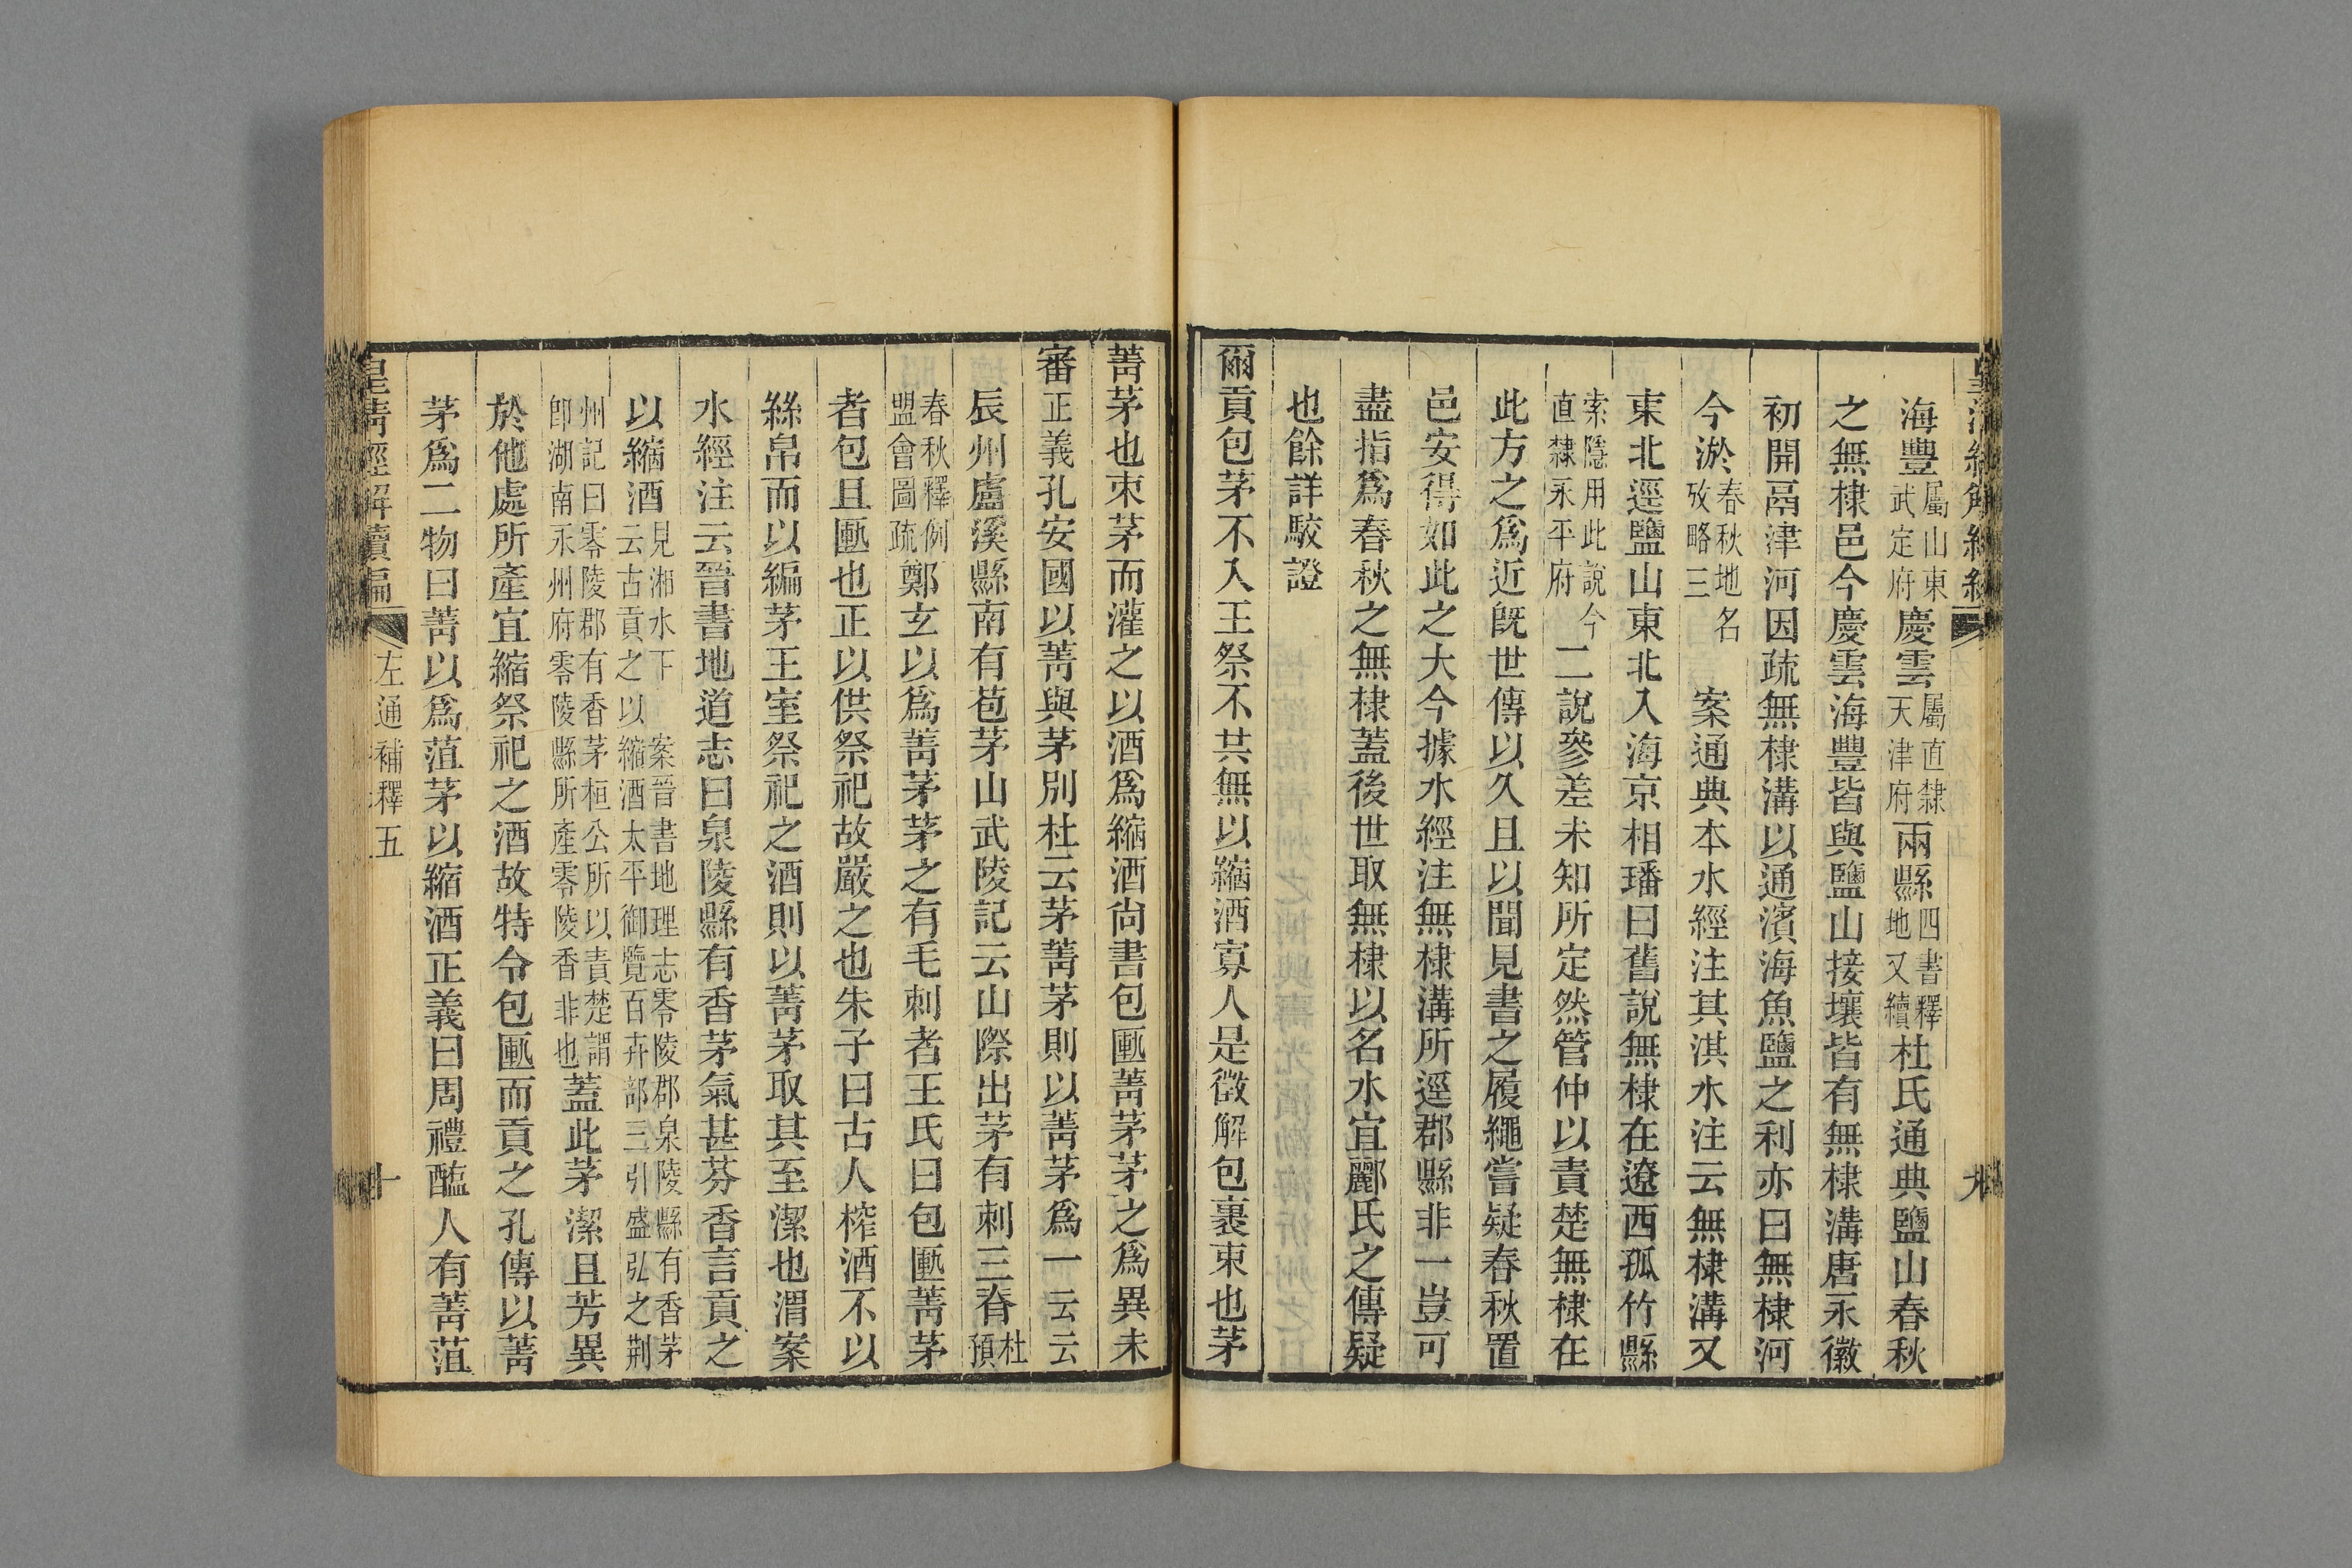 海豐屬山東武定府慶雲屬直隸天津府兩縣四書釋地又續杜氏通典鹽山春秋
之無棣邑今慶雲海豐皆與鹽山接壤皆有無棣溝唐永徽
初開鬲津河因疏無棣溝以通濱海魚鹽之利亦曰無棣河
今淤春秋地名攷略三 案通典本水經注其淇水注云無棣溝又
東北逕鹽山東北入海京相璠曰舊說無棣在遼西孤竹縣
索隱用此說今直隸永平府二說參差未知所定然管仲以責楚無棣在
此方之爲近旣世傳以久且以聞見書之履繩嘗疑春秋置
邑安得如此之大今據水經注無棣溝所逕郡縣非一豈可
盡指爲春秋之無棣蓋後世取無棣以名水宜酈氏之傳疑
也餘詳駮證
爾貢包茅不入王祭不共無以縮酒寡人是徵解包裹束也茅
菁茅也束茅而灌之以酒爲縮酒尙書包匭菁茅茅之爲異未
審正義孔安國以菁與茅別杜云茅菁茅則以菁茅爲一云云
辰州盧溪縣南有苞茅山武陵記云山際出茅有刺三脊杜預
春秋釋例盟會圖疏鄭玄以爲菁茅茅之有毛刺者王氏曰包匭菁茅
者包且匭也正以供祭祀故嚴之也朱子曰古人榨酒不以
絲帛而以編茅王室祭祀之酒則以菁茅取其至潔也渭案
水經注云晉書地道志曰泉陵縣有香茅氣甚芬香言貢之
以縮酒見湘水下云古貢之以縮酒 案晉書地理志零陵郡泉陵縣有香茅太平御覽百卉部三引盛弘之荆
州記曰零陵郡有香茅桓公所以責楚謂卽湖南永州府零陵縣所產零陵香非也蓋此茅潔且芳異
於他處所產宜縮祭祀之酒故特令包匭而貢之孔傳以菁
茅爲二物曰菁以爲菹茅以縮酒正義曰周禮醢人有菁菹
皇清經解續編 左通補釋五 十